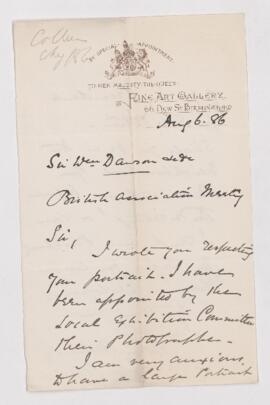 BY SPECIAL APPOINTMENT
TO HER MAJESTY THE QUEEN
FINE ART GALLERY
66 NEW ST BIRMINGHAM
Aug 6. 86
Sir Wm Dawson
British Association Meeting
Sir,
I wrote you respecting
your portrait. I have
been appointed by the
Local Exhibition Committee
their Photographer.
I am very anxious
to have a large Portrait